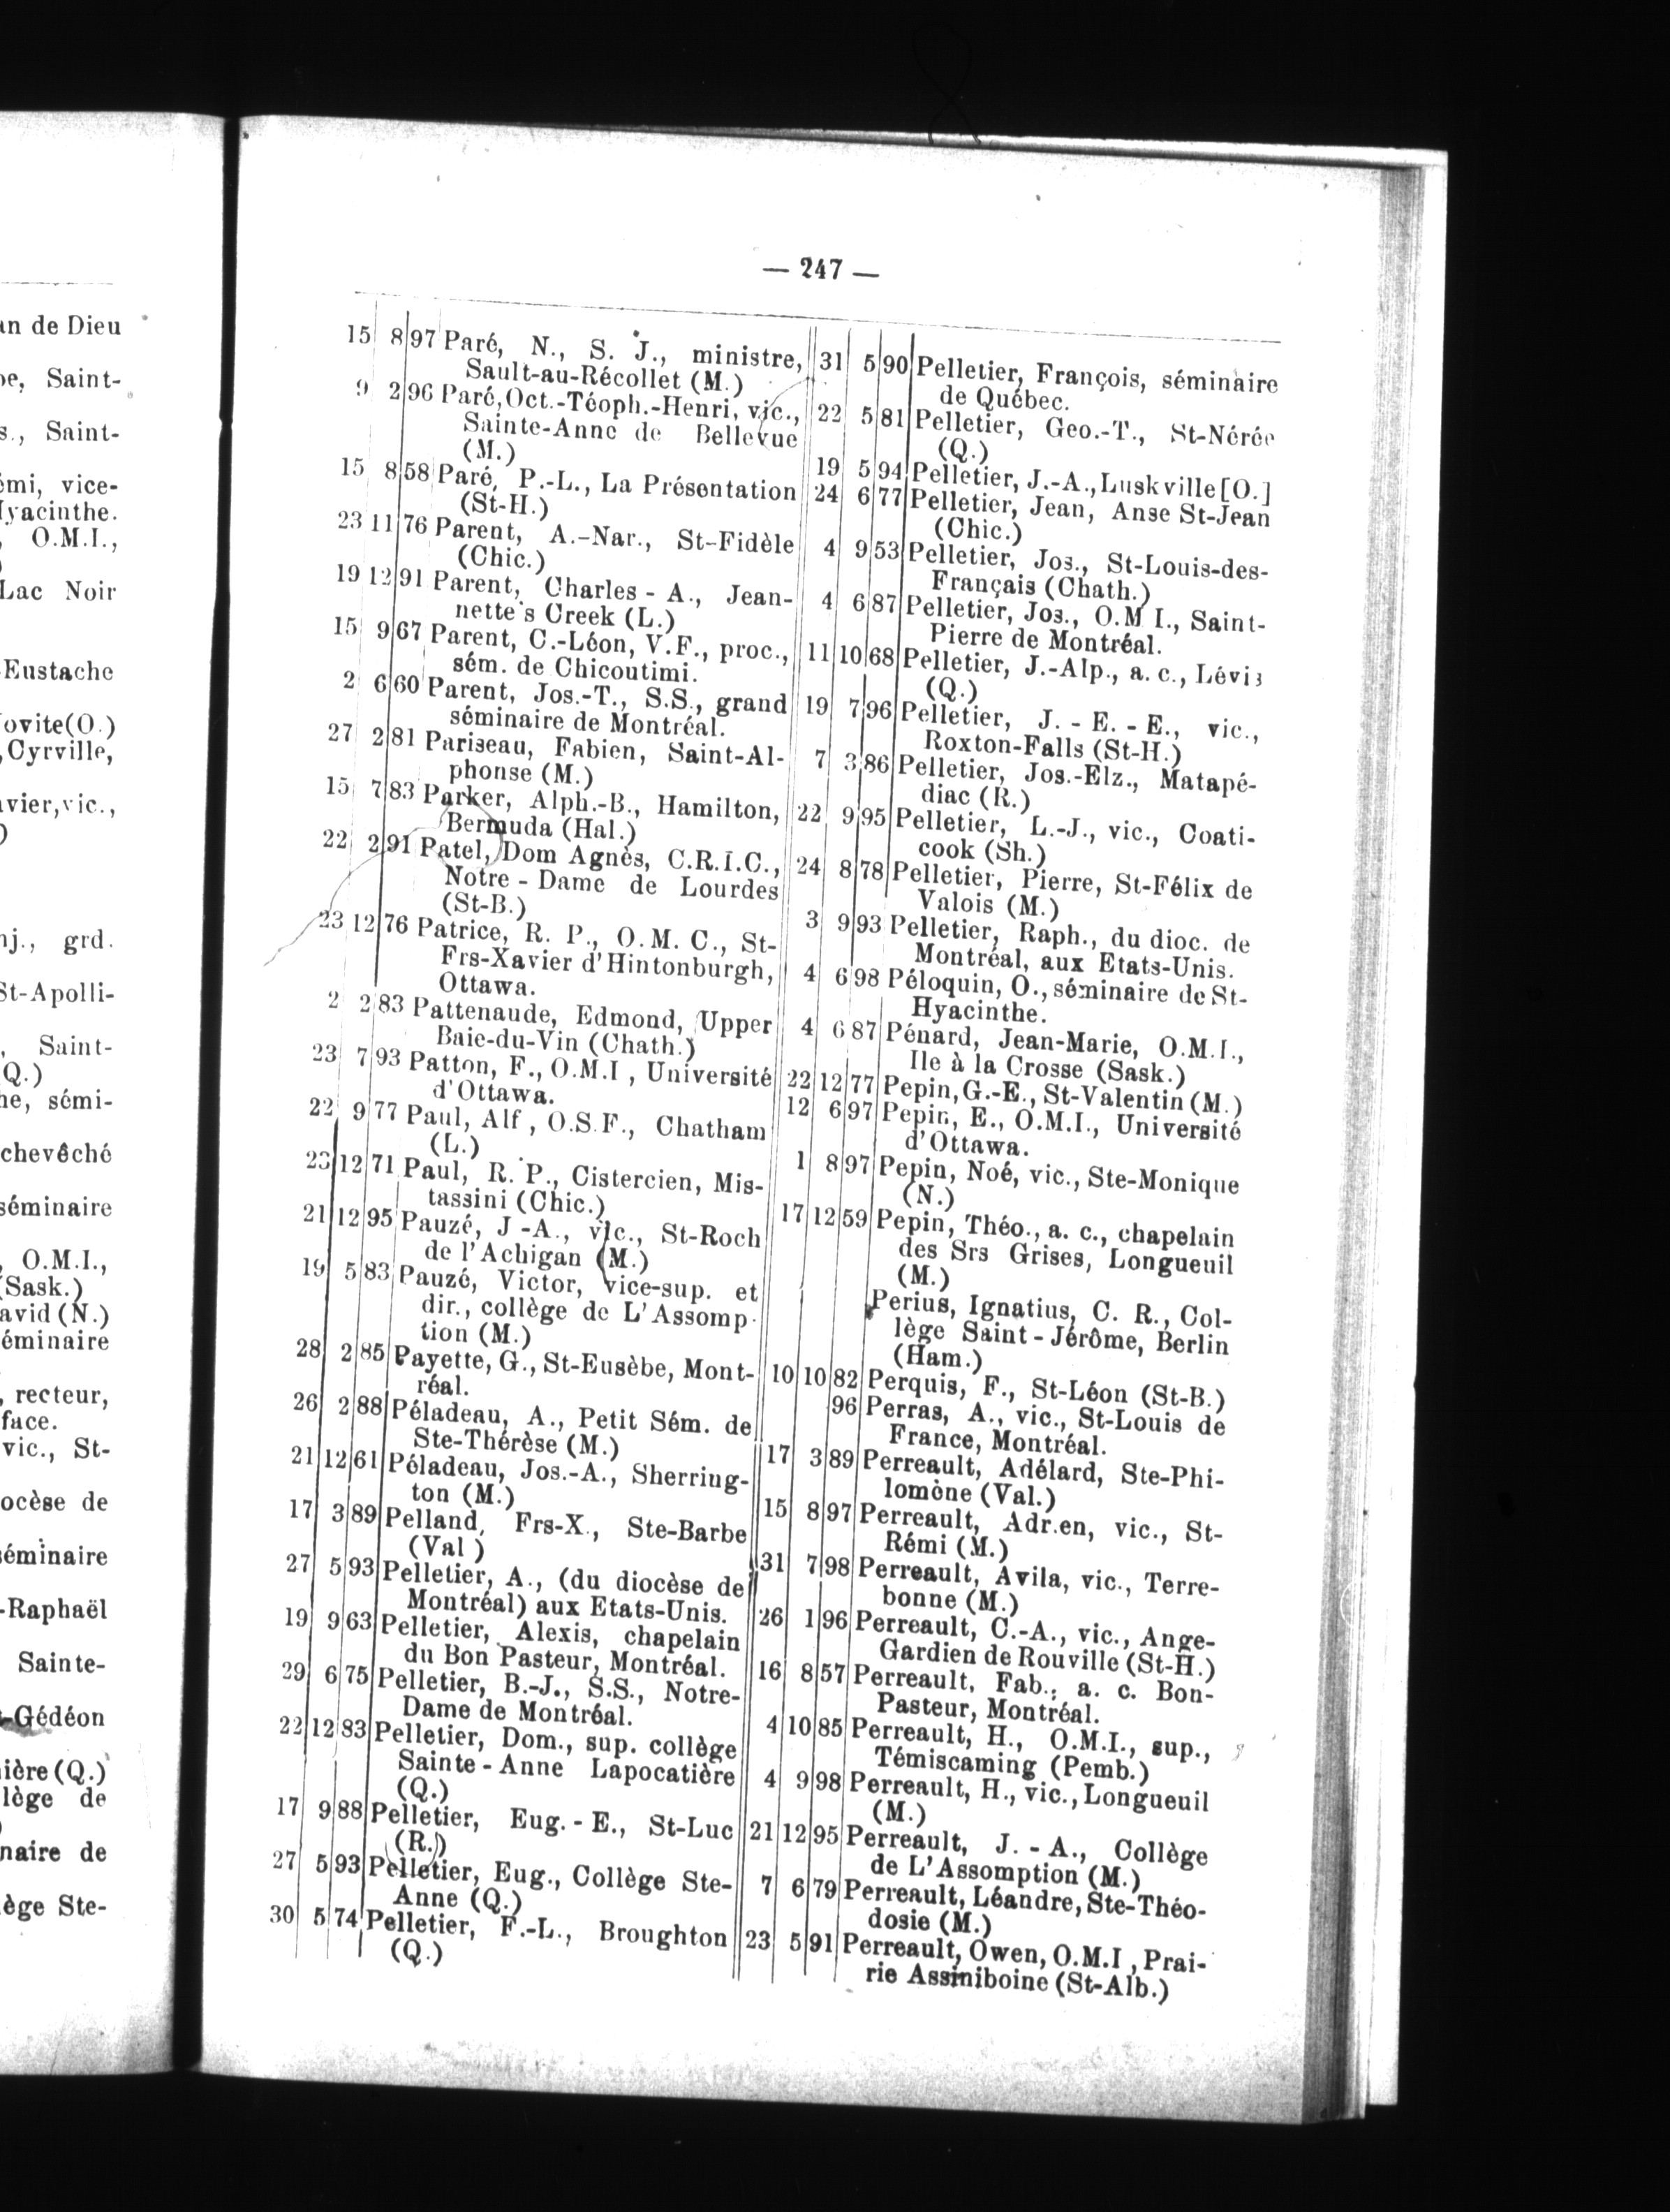 an de Dieu
Saint-
Saint-
vice-
Hyacinthe.
O.M.I.,
Lac Noir
Eustache
ovite(O.)
Cyrville,
vier, vic.,
grd.
St-Apolli-
Saint-
(Q.)
sémi-
chevêché
séminaire
O.M.I.,
(Sask.)
avid (N.)
éminaire
recteur,
face.
vic., St-
ocèse de
séminaire
-Raphaël
Sainte-
-Gédéon
ière (Q.)
lège de
naire de
ège Ste-
— 247 —
15 8 97 Paré, N., S. J., ministre,
Sault-au-Récollet (M.)
9 2 96 Paré, Oct.-Téoph.-Henri, vic.,
Sainte-Anne de Bellevue
(M.)
15 8 58 Paré, P.-L., La Présentation
(St-H.)
23 11 76 Parent, A.-Nar., St-Fidèle
(Chic.)
19 12 91 Parent, Charles - A., Jean-
nette's Creek (L.)
15 9 67 Parent, C.-Léon, V.F., proc.,
sém. de Chicoutimi.
2 6 60 Parent, Jos.-T., S.S., grand
séminaire de Montréal.
27 2 81 Pariseau, Fabien, Saint-Al-
phonse (M.)
15 7 83 Parker, Alph.-B., Hamilton,
Bermuda (Hal.)
22 2 91 Patel, Dom Agnès, C.R.I.C.,
Notre - Dame de Lourdes
(St-B.)
23 12 76 Patrice, R. P., O. M. C., St-
Frs-Xavier d'Hintonburgh,
Ottawa.
2 2 83 Pattenaude, Edmond, Upper
Baie-du-Vin (Chath.)
23 7 93 Patton, F., O.M.I , Université
d'Ottawa.
22 9 77 Paul, Alf , O.S.F., Chatham
(L.)
23 12 71 Paul, R. P., Cistercien, Mis-
tassini (Chic.)
21 12 95 Pauzé, J -A., vic., St-Roch
de l'Achigan (M.)
19 5 83 Pauzé, Victor, vice-sup. et
dir., collège de L'Assomp-
tion (M.)
28 2 85 Payette, G., St-Eusèbe, Mont-
réal.
26 2 88 Péladeau, A., Petit Sém. de
Ste-Thérèse (M.)
21 12 61 Péladeau, Jos.-A., Sherring-
ton (M.)
17 3 89 Pelland, Frs-X., Ste-Barbe
(Val )
27 5 93 Pelletier, A., (du diocèse de
Montréal) aux Etats-Unis.
19 9 63 Pelletier, Alexis, chapelain
du Bon Pasteur, Montréal.
29 6 75 Pelletier, B.-J., S.S., Notre-
Dame de Montréal.
22 12 83 Pelletier, Dom., sup. collège
Sainte - Anne Lapocatière
(Q.)
17 9 88 Pelletier, Eug. - E., St-Luc
(R.)
27 5 93 Pelletier, Eug., Collège Ste-
Anne (Q.)
30 5 74 Pelletier, F.-L., Broughton
(Q.)
31 5 90 Pelletier, François, séminaire
de Québec.
22 5 81 Pelletier, Geo.-T., St-Nérée
(Q.)
19 5 94 Pelletier, J.-A., Luskville [O.]
24 6 77 Pelletier, Jean, Anse St-Jean
(Chic.)
4 9 53 Pelletier, Jos., St-Louis-des-
Français (Chath.)
4 6 87 Pelletier, Jos., O.M I., Saint-
Pierre de Montréal.
11 10 68 Pelletier, J.-Alp., a. c., Lévis
(Q.)
19 7 96 Pelletier, J. - E. - E., vic.,
Roxton-Falls (St-H.)
7 3 86 Pelletier, Jos.-Elz., Matapé-
diac (R.)
22 9 95 Pelletier, L.-J., vic., Coati-
cook (Sh.)
24 8 78 Pelletier, Pierre, St-Félix de
Valois (M.)
3 9 93 Pelletier, Raph., du dioc. de
Montréal, aux Etats-Unis.
4 6 98 Péloquin, O., séminaire de St-
Hyacinthe.
4 6 87 Pénard, Jean-Marie, O.M.I.,
Ile à la Crosse (Sask.)
22 12 77 Pepin, G.-E., St-Valentin (M.)
12 6 97 Pepin, E., O.M.I., Université
d'Ottawa.
1 8 97 Pepin, Noé, vic., Ste-Monique
(N.)
17 12 59 Pepin, Théo., a. c., chapelain
des Srs Grises, Longueuil
(M.)
Perius, Ignatius, C. R., Col-
lège Saint - Jérôme, Berlin
(Ham.)
10 10 82 Perquis, F., St-Léon (St-B.)
96 Perras, A., vic., St-Louis de
France, Montréal.
17 3 89 Perreault, Adélard, Ste-Phi-
lomène (Val.)
15 8 97 Perreault, Adr.en, vic., St-
Rémi (M.)
31 7 98 Perreault, Avila, vic., Terre-
bonne (M.)
26 1 96 Perreault, C.-A., vic., Ange-
Gardien de Rouville (St-H.)
16 8 57 Perreault, Fab., a. c. Bon-
Pasteur, Montréal.
4 10 85 Perreault, H., O.M.I., sup.,
Témiscaming (Pemb.)
4 9 98 Perreault, H., vic., Longueuil
(M.)
21 12 95 Perreault, J. - A., Collège
de L'Assomption (M.)
7 6 79 Perreault, Léandre, Ste-Théo-
dosie (M.)
23 5 91 Perreault, Owen, O.M.I , Prai-
rie Assiniboine (St-Alb.)